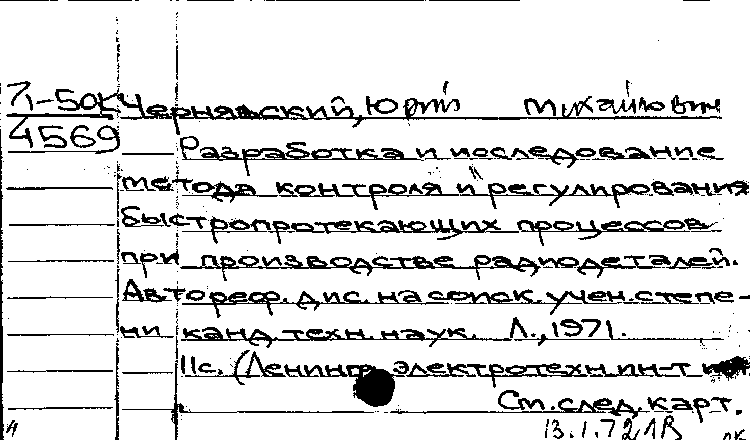 Л-50к
4569
Чернявский, Юрий Михайлович
Разработка и исследование
метода контроля и регулирования
быстропротекающих процессов
при производстве радиодеталей.
Автореф. дис. на соиск. учен. степе-
ни канд. техн. наук. Л., 1971.
11с. (Ленингр. электротехн. ин-т
См. след. карт.
13.1.72